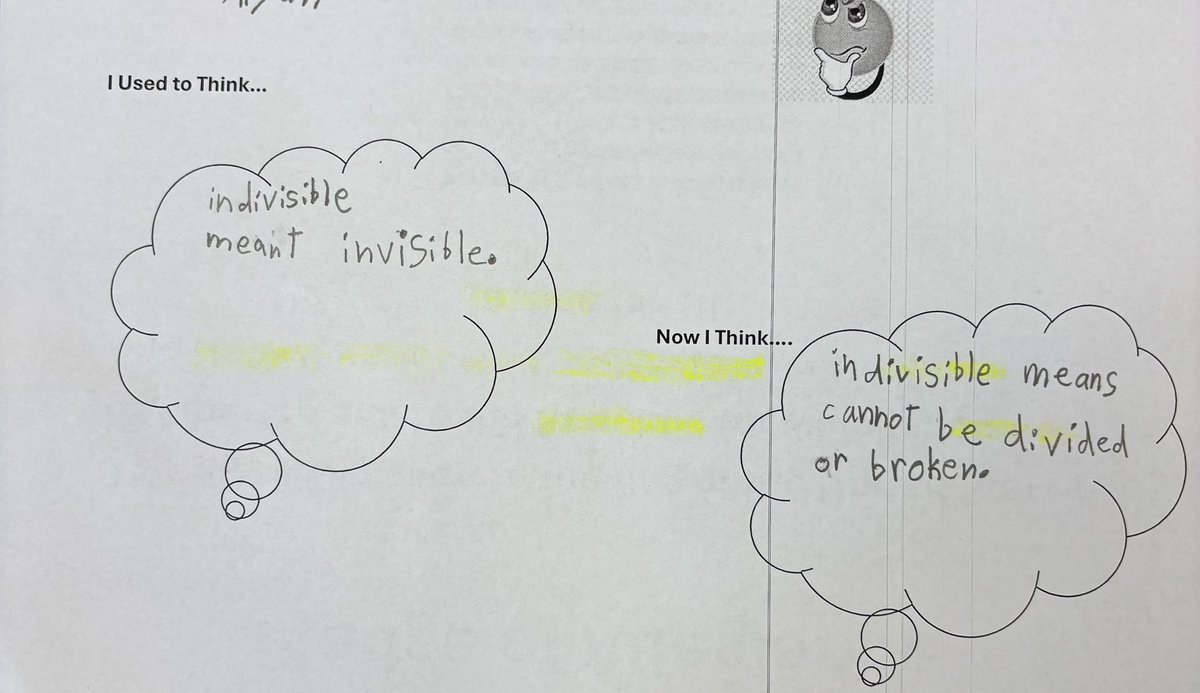 I Used to Think...
indivisible
meant invisible.
Now I Think....
indivisible means
cannot be divided
or broken.